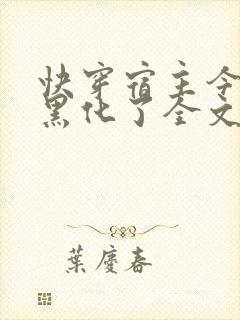 快穿宿主今
黑化了全文
葉慶春